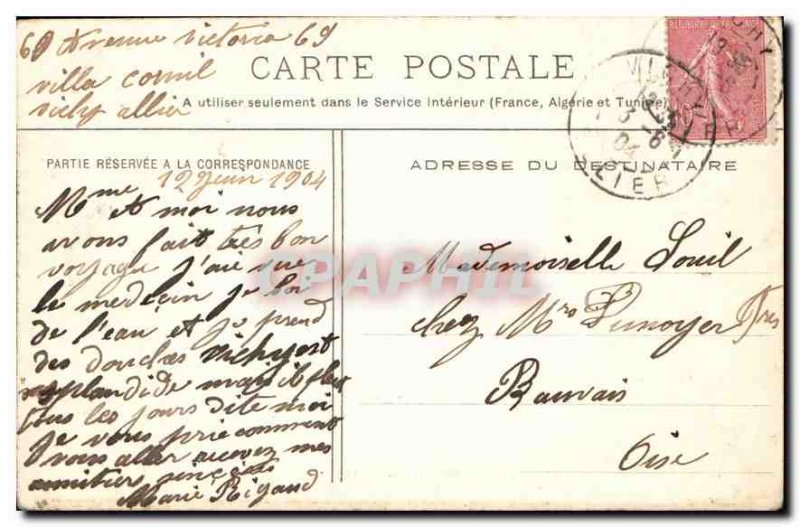 69 Avenue Victoria 69
villa Cornil
vichy allier
CARTE POSTALE
A utiliser seulement dans le Service Intérieur (France, Algérie et Tunisie)
PARTIE RÉSERVÉE A LA CORRESPONDANCE
12 juin 1904
Mme et moi nous
avons fait très bon
voyage j'aie vue
le medecin je boi
de l'eau et je prend
des douches vichy est
splandide mais il pleut
tous les jours dite moi
je vous prie comment
vous aller recevez mes
amitiers sincère
Marie Rigaud
ADRESSE DU DESTINATAIRE
Mademoiselle Louil
chez Mrs Dunoyer Frès
Bauvais
Oise
VICHY
ALLIER
CPAPHIL